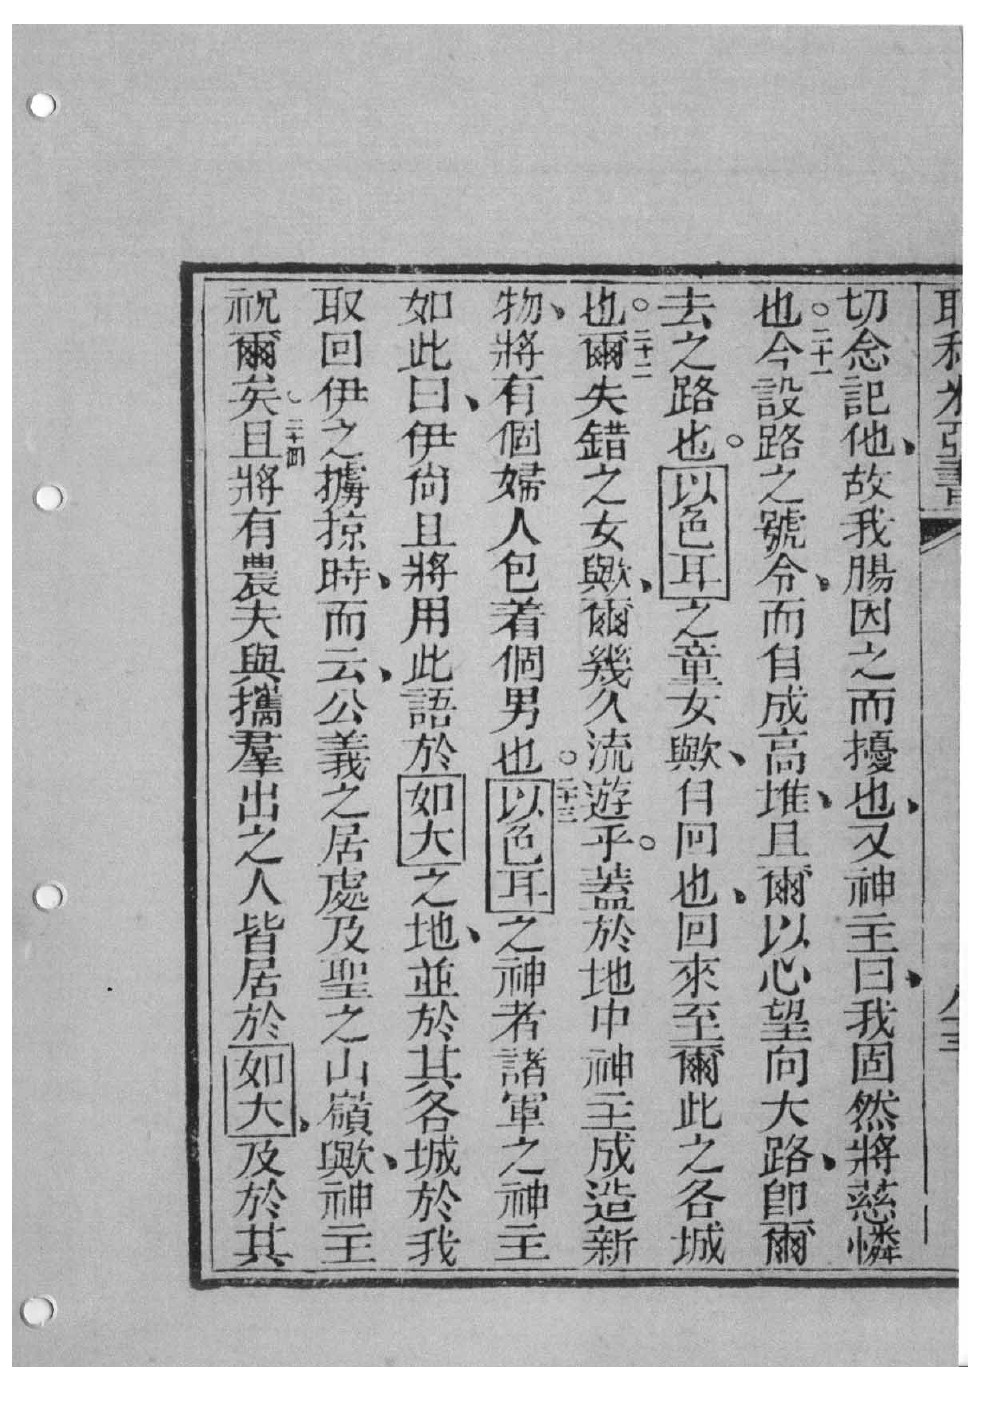 耶利米亞書
切念記他、故我腸因之而擾也、又神主曰、我固然將慈憐
也。二十一今設路之號令、而自成高堆、且爾以心望向大路、卽爾
去之路也。以色耳之童女歟、自回也、回來至爾此之各城
也。二十二爾失錯之女歟、爾幾久流遊乎。蓋於地中神主成造新
物、將有個婦人包着個男也。二十三以色耳之神者諸軍之神主
如此曰、伊尙且將用此語於如大之地、並於其各城於我
取回伊之擄掠時、而云、公義之居處及聖之山嶺歟、神主
祝爾矣。二十四且將有農夫與攜羣出之人皆居於如大、及於其